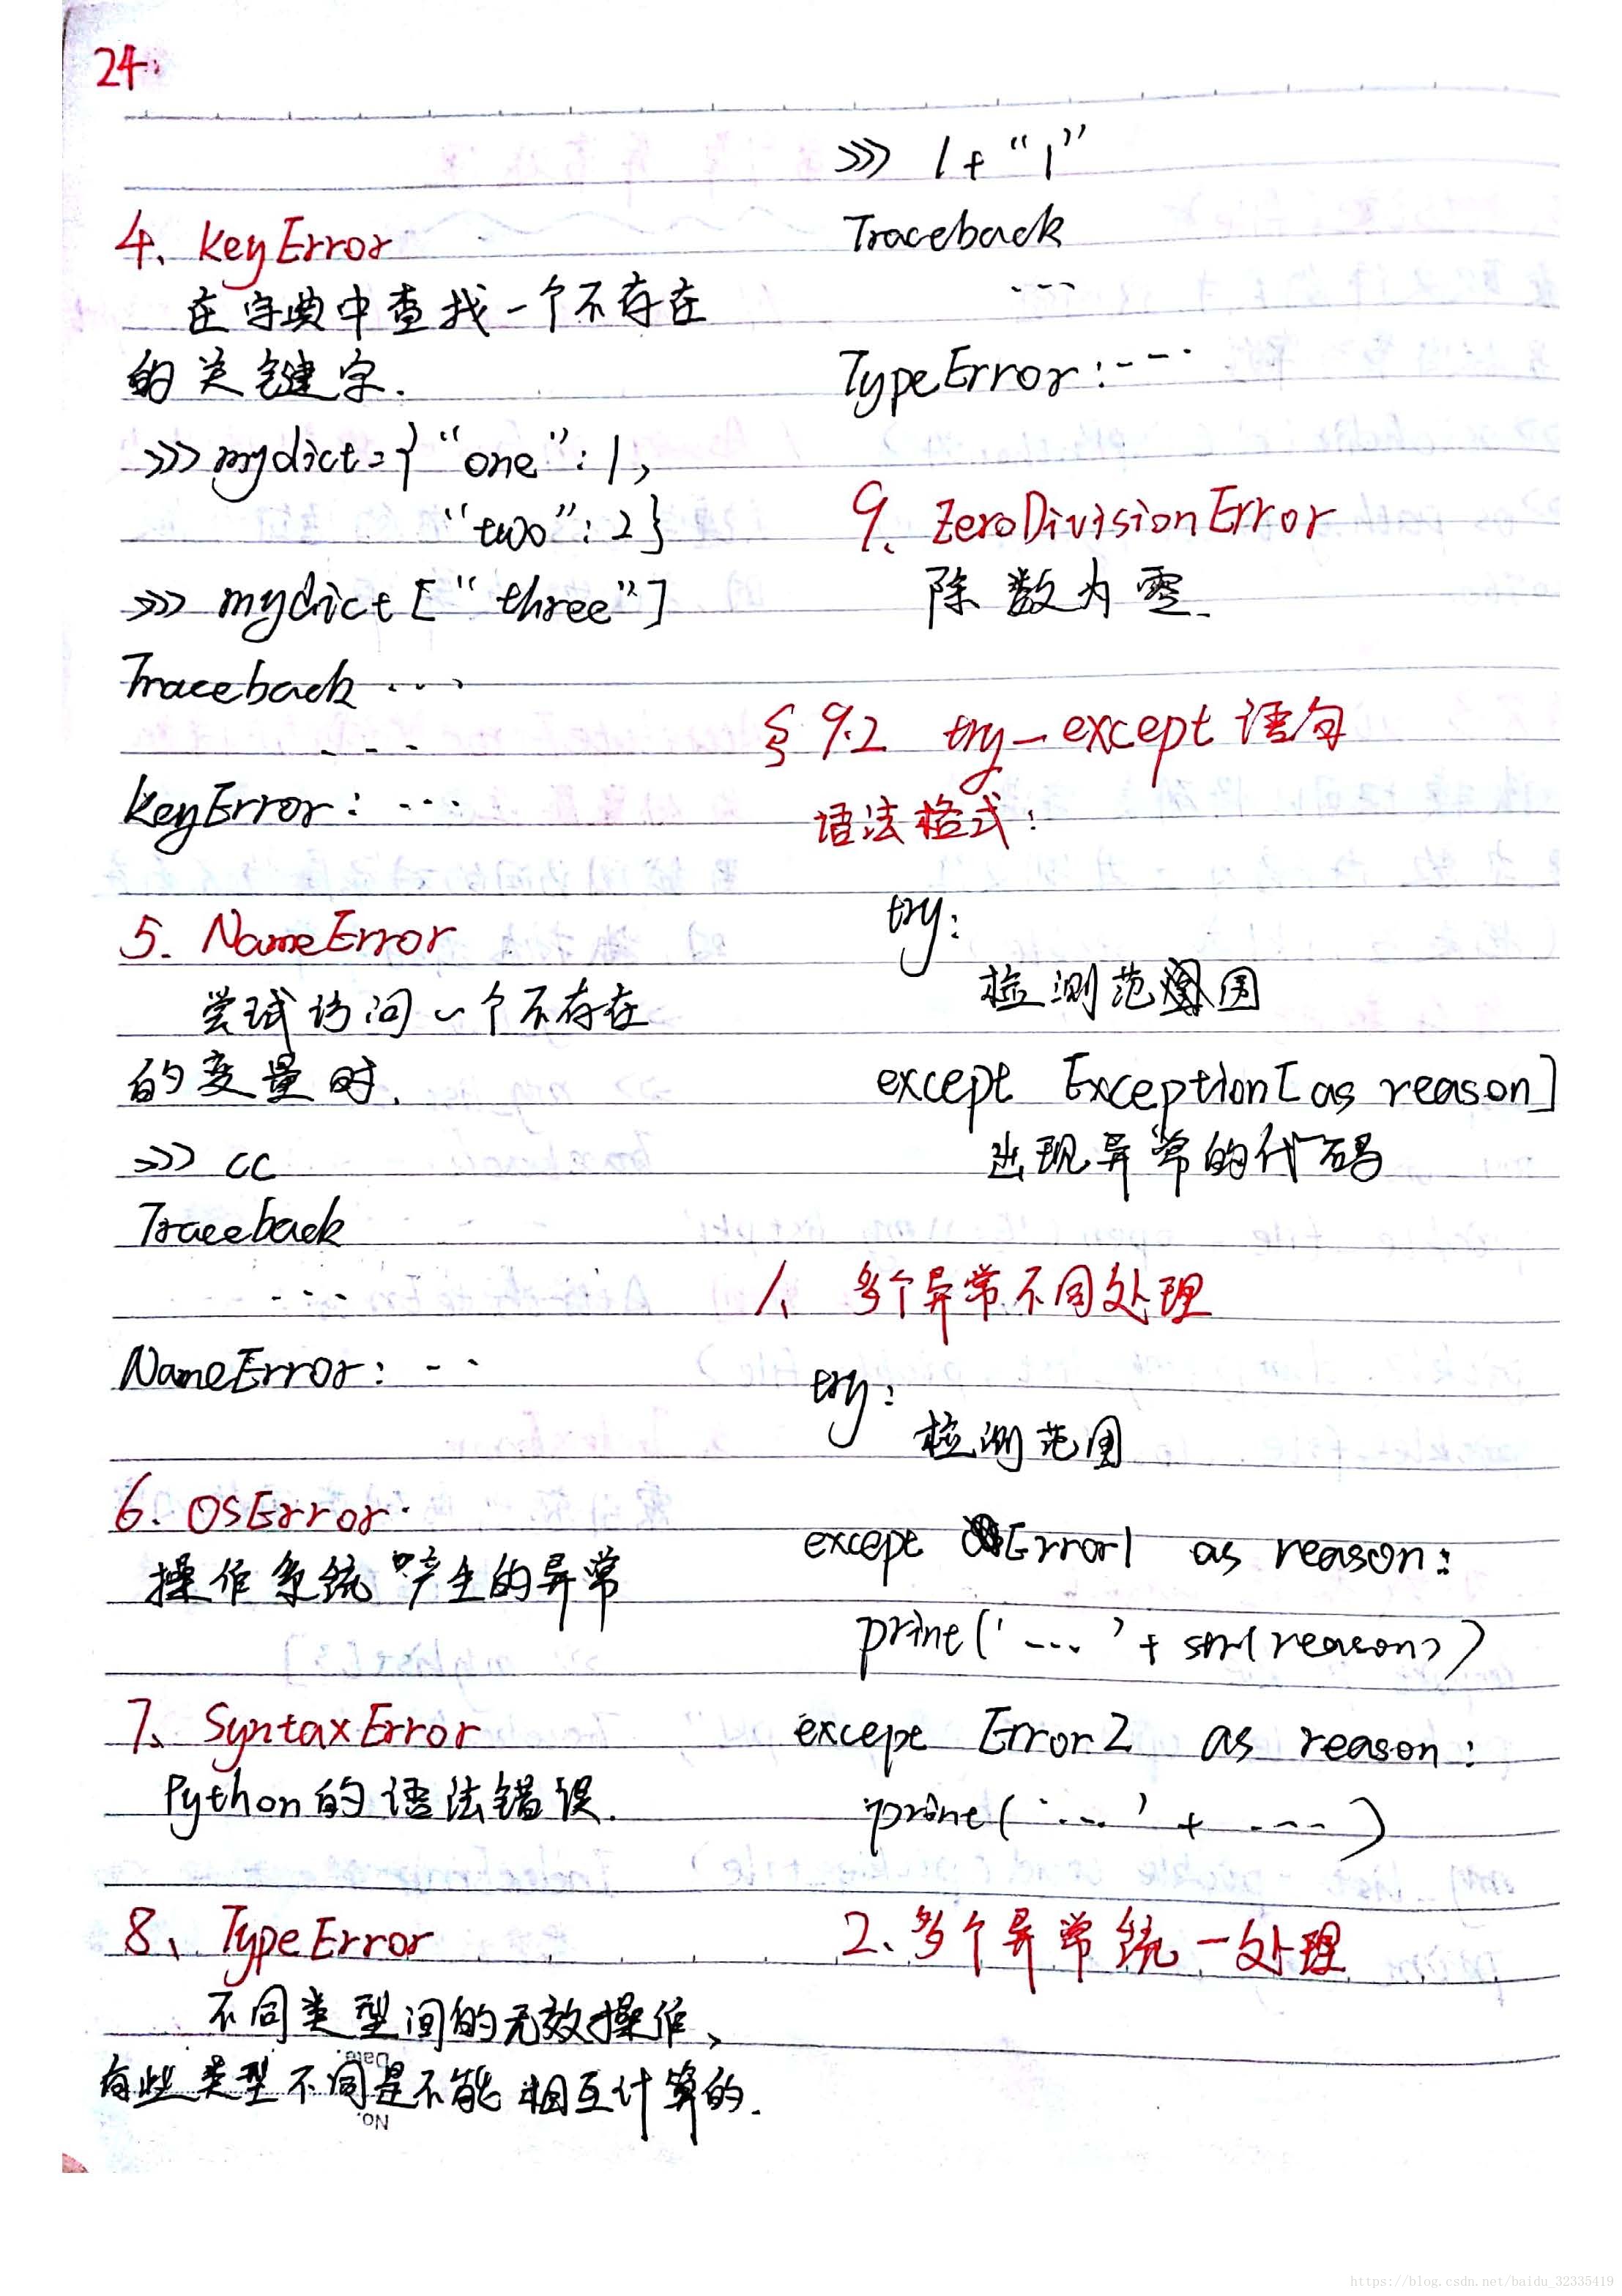 24.
4、KeyError
在字典中查找一个不存在
的关键字.
>>> mydict={“one”:1,
“two”:2}
>>> mydict[“three”]
Traceback ...
...
KeyError: ...
5. NameError
尝试访问一个不存在
的变量时.
>>> cc
Traceback
...
NameError: ...
6. OSError.
操作系统产生的异常
7、SyntaxError
Python的语法错误.
8、TypeError
不同类型间的无效操作、
有些类型不同是不能相互计算的.
Date.
No.
>>> 1+“1”
Traceback
...
TypeError: ...
9、ZeroDivisionError
除数为零.
§9.2 try-except语句
语法格式:
try:
检测范围
except Exception[as reason]
出现异常的代码
1、多个异常不同处理
try:
检测范围
except Error1 as reason:
print('...'+str(reason))
except Error2 as reason:
print('...'+ ...)
2、多个异常统一处理
https://blog.csdn.net/baidu_32335419